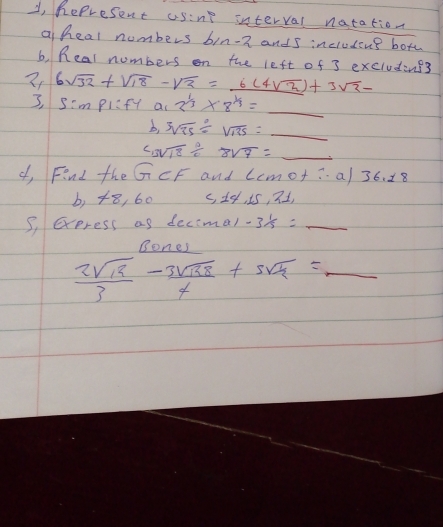 1, Represent using interval natation
a, Real numbers b/n -2 and 5 including both
b, Real numbers on the left of 3 excluding 3
2, 6√32 + √18 - √2 = 6(4√2) + 3√2 -
3, Simplify a. 2^⅓ × 8^⅓ =
b, 3√25 ÷ √125 =
c, 3√18 ÷ 8√7 =
4, Find the GCF and Lcm of :- a) 36,28
b, 78, 60 c, 14, 15, 21,
5, Express as decimal -3⅛ =
Bones
2√12/3 - 3√128/4 + 5√½ =